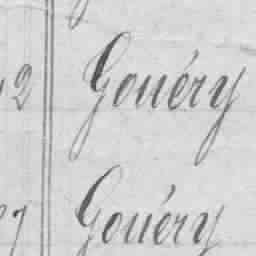 2 Gouéry
7 Gouéry